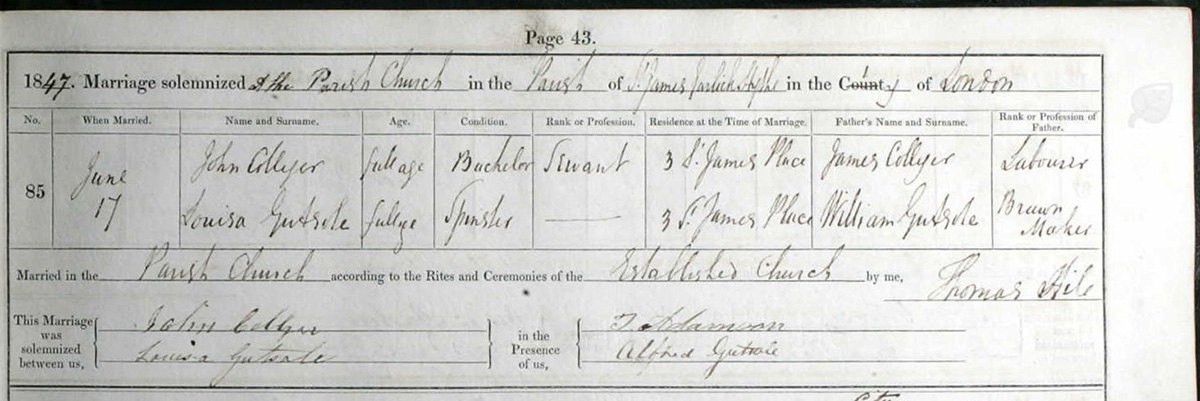 Page 43.
1847. Marriage solemnized at the Parish Church in the Parish of St. James Garlick Hythe in the County of London
No. When Married. Name and Surname. Age. Condition. Rank or Profession. Residence at the Time of Marriage. Father's Name and Surname. Rank or Profession of Father.
85 June 17 John Collyer full age Bachelor Servant 3 St. James Place James Collyer Labourer
Louisa Gutsole full age Spinster 3 St. James Place William Gutsole Maker
Married in the Parish Church according to the Rites and Ceremonies of the Established Church by me, Thomas
This Marriage was solemnized between us, John Collyer Louisa Gutsole in the Presence of us, Alfred Gutsole